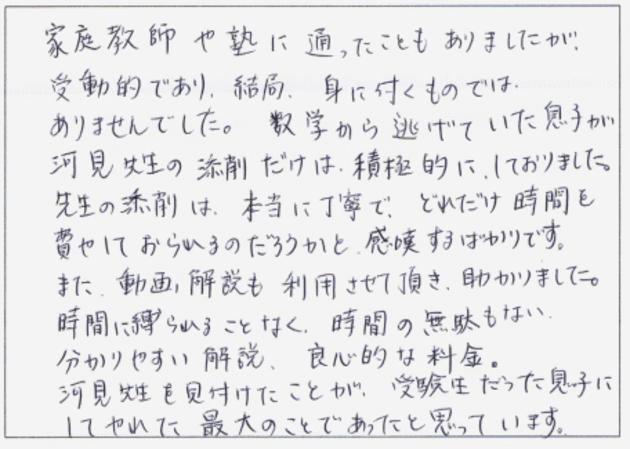 家庭教師や塾に通ったこともありましたが、
受動的であり、結局、身に付くものでは
ありませんでした。数学から逃げていた息子が
河見先生の添削だけは、積極的に、しておりました。
先生の添削は、本当に丁寧で、どれだけ時間を
費やしておられるのだろうかと、感嘆するばかりです。
また、動画解説も利用させて頂き、助かりました。
時間に縛られることなく、時間の無駄もない、
分かりやすい解説、良心的な料金。
河見先生を見付けたことが、受験生だった息子に
してやれた最大のことであったと思っています。